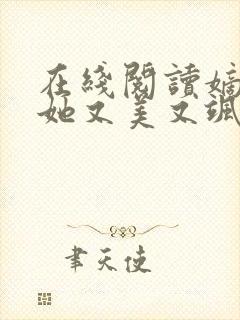 在綫閱讀嫡
她又美又颯
聿天使